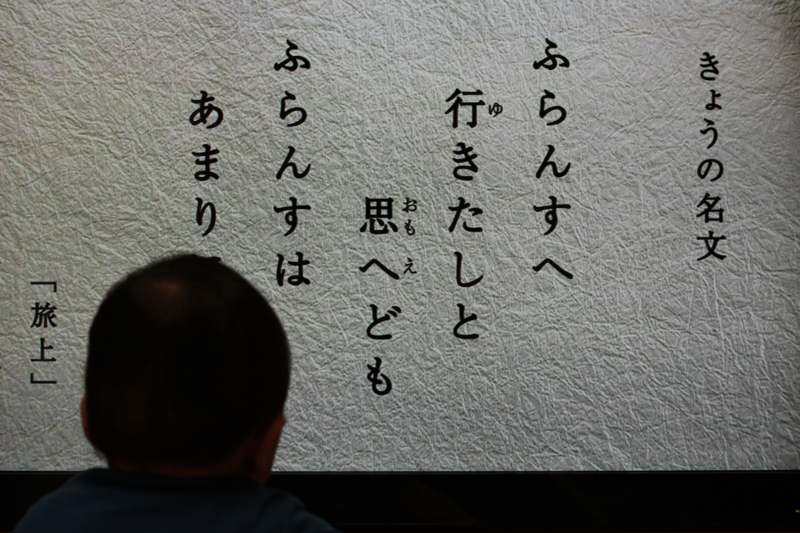 きょうの名文
ふらんすへ
行きたしと
ゆ
思へども
おも え
ふらんすは
あまり
「旅上」